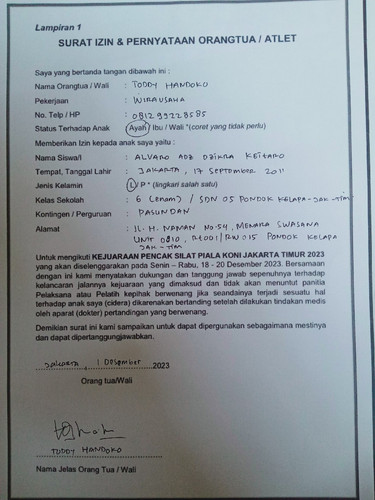 Lampiran 1
SURAT IZIN & PERNYATAAN ORANGTUA / ATLET
Saya yang bertanda tangan dibawah ini :
Nama Orangtua / Wali : TODDY HANDOKO
Pekerjaan : WIRAUSAHA
No. Telp / HP : 081299228585
Status Terhadap Anak : Ayah / Ibu / Wali *(coret yang tidak perlu)
Memberikan Izin kepada anak saya yaitu :
Nama Siswa/i : ALVARO ADZ DZIKRA KEITARO
Tempat, Tanggal Lahir : JAKARTA, 17 SEPTEMBER 2011
Jenis Kelamin : L / P * (lingkari salah satu)
Kelas Sekolah : 6 (enam) / SDN 05 PONDOK KELAPA-JAK-TIM
Kontingen / Perguruan : PASUNDAN
Alamat : JL. H. NAMAN NO.54, MENARA SWASANA
UNIT 0810, RT001/RW015 PONDOK KELAPA
JAK-TIM
Untuk mengikuti KEJUARAAN PENCAK SILAT PIALA KONI JAKARTA TIMUR 2023
yang akan diselenggarakan pada Senin – Rabu, 18 - 20 Desember 2023. Bersamaan
dengan ini kami menyatakan dukungan dan tanggung jawab sepenuhnya terhadap
kelancaran jalannya kejuaraan yang dimaksud dan tidak akan menuntut panitia
Pelaksana atau Pelatih kepihak berwenang jika seandainya terjadi sesuatu hal
terhadap anak saya (cidera) dikarenakan bertanding setelah dilakukan tindakan medis
oleh aparat (dokter) pertandingan yang berwenang.
Demikian surat ini kami sampaikan untuk dapat dipergunakan sebagaimana mestinya
dan dapat dipertanggungjawabkan.
Jakarta, 1 Desember 2023
Orang tua/Wali
TODDY HANDOKO
Nama Jelas Orang Tua / Wali